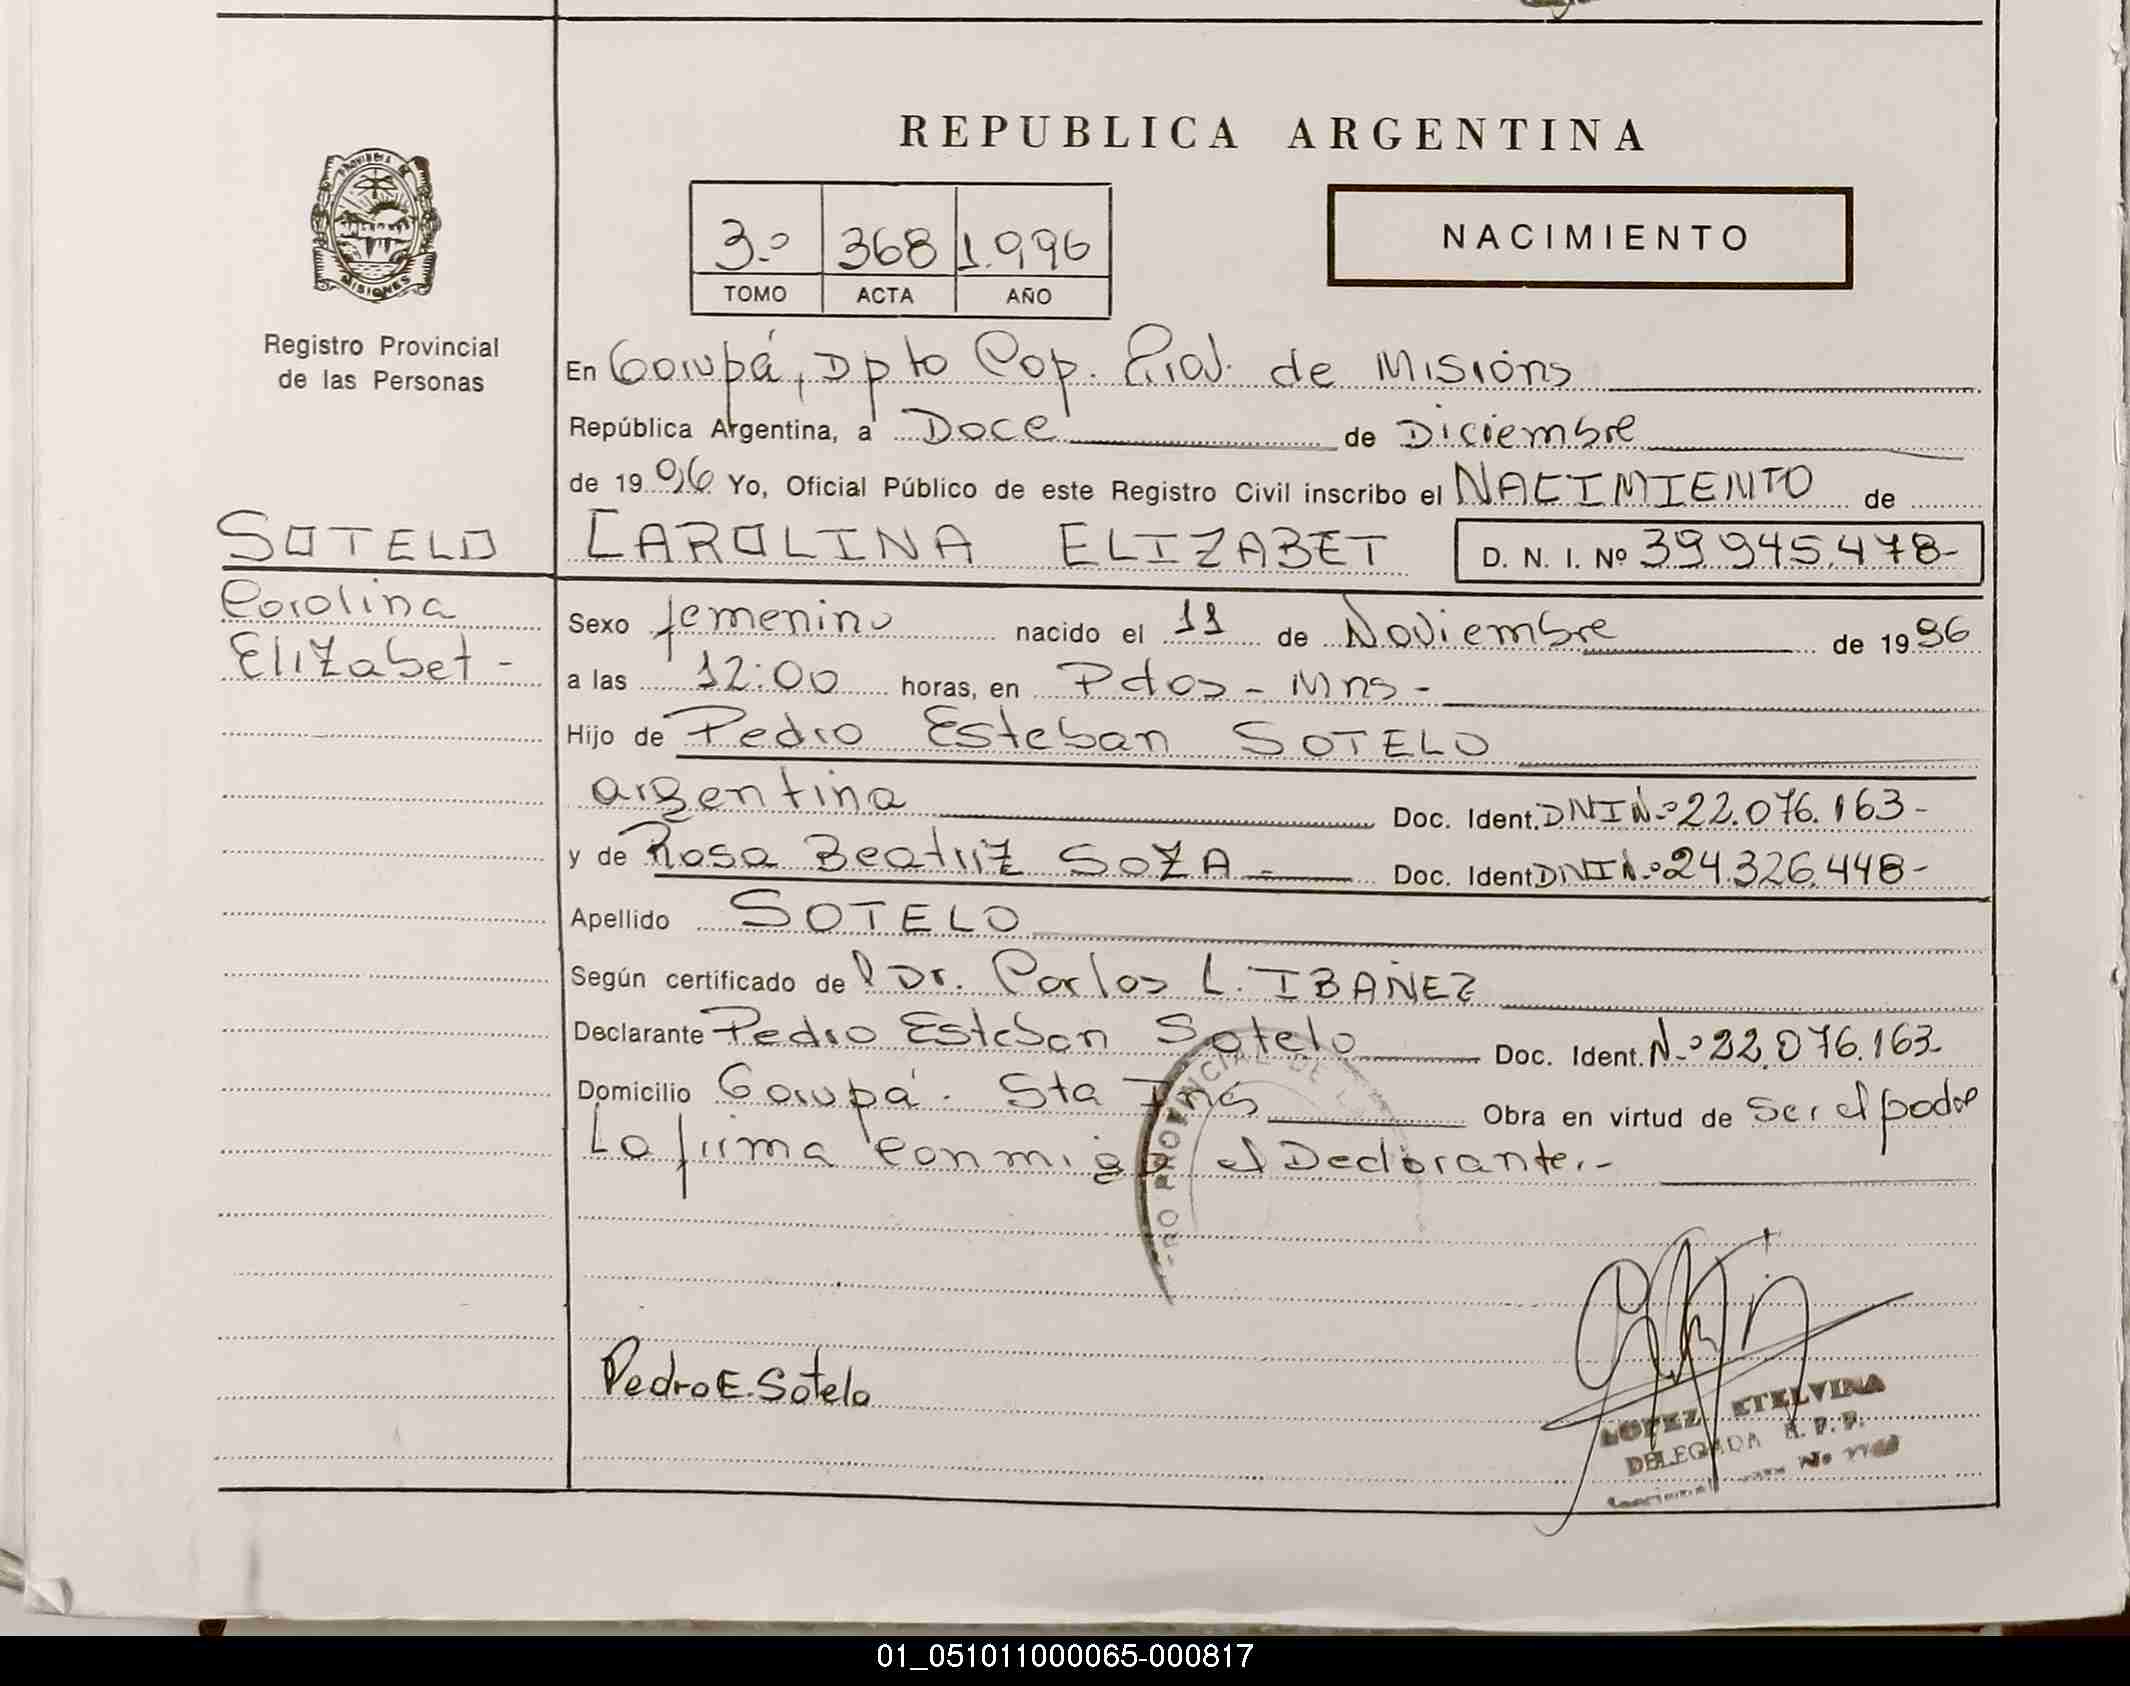 REPUBLICA ARGENTINA
PROVINCIA DE
MISIONES
Registro Provincial
de las Personas
3.º 368 1.996
TOMO ACTA AÑO
NACIMIENTO
En Garupá, Dpto Cap. Prov. de Misións
República Argentina, a Doce de Diciembre
de 1996 Yo, Oficial Público de este Registro Civil inscribo el NACIMIENTO de
SOTELO
CAROLINA ELIZABET D. N. I. Nº 39.945.478-
Carolina
Elizabet -
Sexo femenino nacido el 11 de Noviembre de 1996
a las 12:00 horas, en Pdas - Mns -
Hijo de Pedro Esteban SOTELO
argentina Doc. Ident. DNI Nº 22.076.163-
y de Rosa Beatriz SOZA - Doc. Ident DNI Nº 24.326.448-
Apellido SOTELO
Según certificado del Dr. Carlos L. IBAÑEZ
Declarante Pedro Esteban Sotelo Doc. Ident. Nº 22.076.163-
Domicilio Garupá. Sta Inés Obra en virtud de ser el padre
La firma conmigo el Declarante.-
RO PROVINCIAL DE L
Pedro E. Sotelo
LOPEZ ETELVINA
DELEGADA R. P. P.
No
01_051011000065-000817